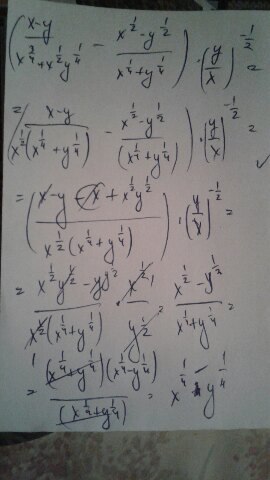 ( (x-y)/(x^(3/4) + x^(1/2) y^(1/4)) - (x^(1/2) - y^(1/2))/(x^(1/4) + y^(1/4)) ) · (y/x)^(-1/2) =
= ( (x-y)/(x^(1/2)(x^(1/4) + y^(1/4))) - (x^(1/2) - y^(1/2))/((x^(1/4) + y^(1/4))) ) · (y/x)^(-1/2) =
= ( (x - y - x + x^(1/2) y^(1/2))/(x^(1/2)(x^(1/4) + y^(1/4))) ) · (y/x)^(-1/2) =
= (x^(1/2) y^(1/2) - y)/(x^(1/2)(x^(1/4) + y^(1/4))) · x^(1/2)/y^(1/2) = (x^(1/2) - y^(1/2))/(x^(1/4) + y^(1/4)) =
= ((x^(1/4) + y^(1/4))(x^(1/4) - y^(1/4)))/((x^(1/4) + y^(1/4))) = x^(1/4) - y^(1/4)